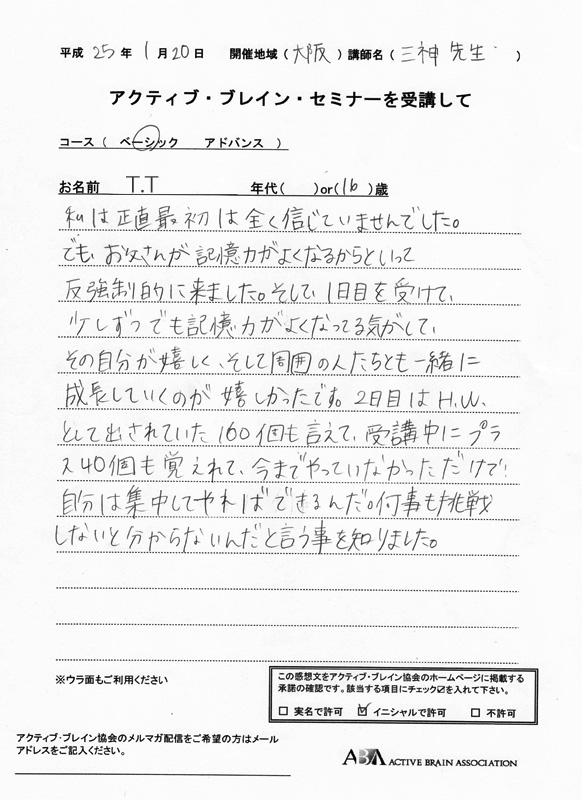 平成 25 年 1 月 20 日　開催地域（大阪）講師名（三神 先生）
アクティブ・ブレイン・セミナーを受講して
コース（ ベーシック　アドバンス ）
お名前　T.T　年代(　)or(16)歳
私は正直最初は全く信じていませんでした。
でも、お父さんが記憶力がよくなるからといって
反強制的に来ました。そして、1日目を受けて、
少しずつでも記憶力がよくなってる気がして、
その自分が嬉しく、そして周囲の人たちとも一緒に
成長していくのが嬉しかったです。2日目はH.W.
として出されていた160個も言えて、受講中にプラ
ス40個も覚えれて、今までやっていなかっただけで!
自分は集中してやればできるんだ。何事も挑戦
しないと分からないんだと言う事を知りました。
※ウラ面もご利用ください
この感想文をアクティブ・ブレイン協会のホームページに掲載する
承諾の確認です。該当する項目にチェック☑を入れて下さい。
□ 実名で許可　☑ イニシャルで許可　□ 不許可
アクティブ・ブレイン協会のメルマガ配信をご希望の方はメール
アドレスをご記入ください。
ABA ACTIVE BRAIN ASSOCIATION